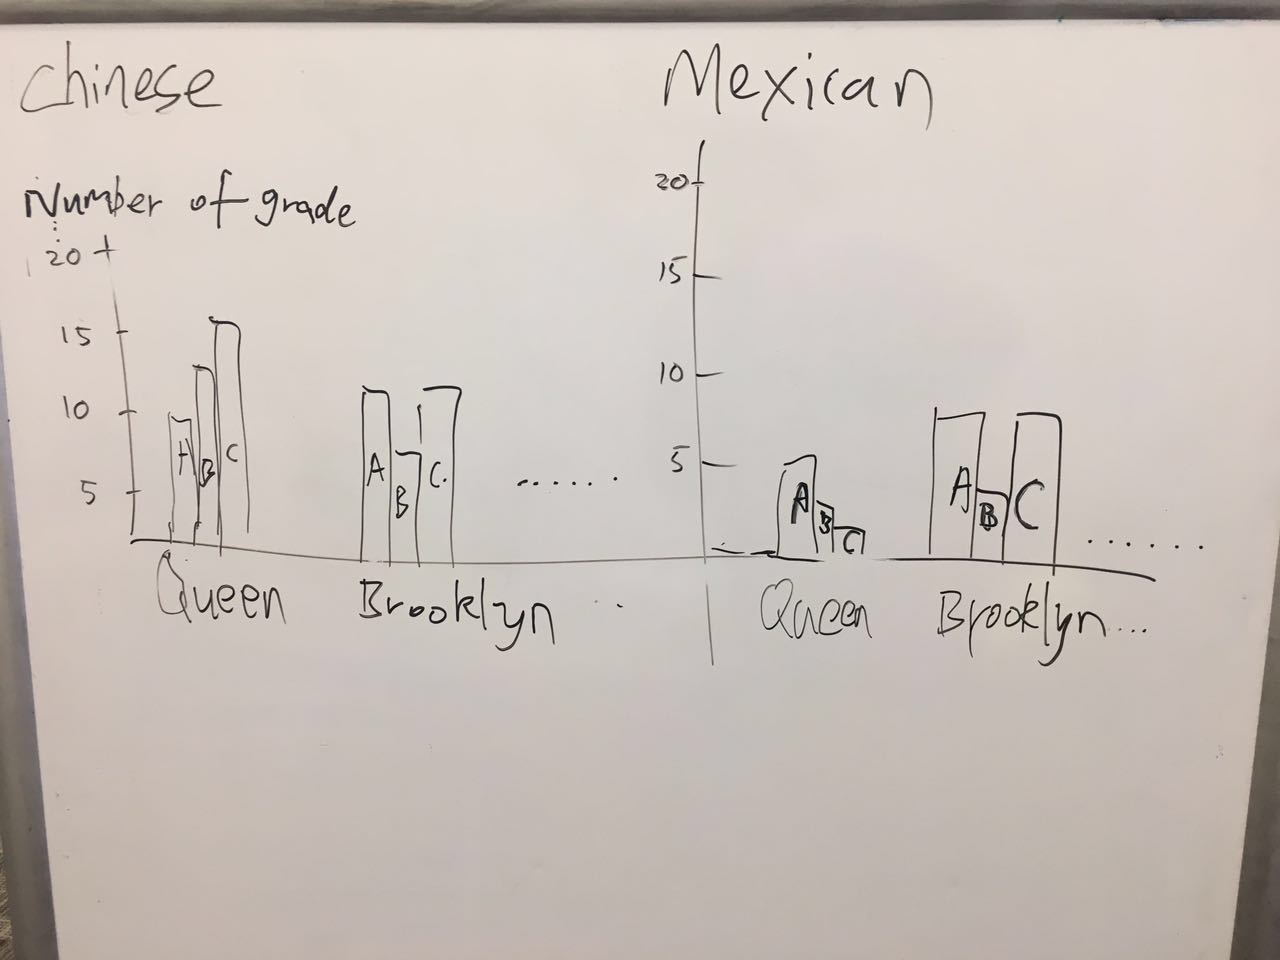 Chinese
Number of grade
20
15
10
5
A B C
A B C.
......
Queen Brooklyn ..
Mexican
20
15
10
5
A B C
A B C
......
Queen Brooklyn...